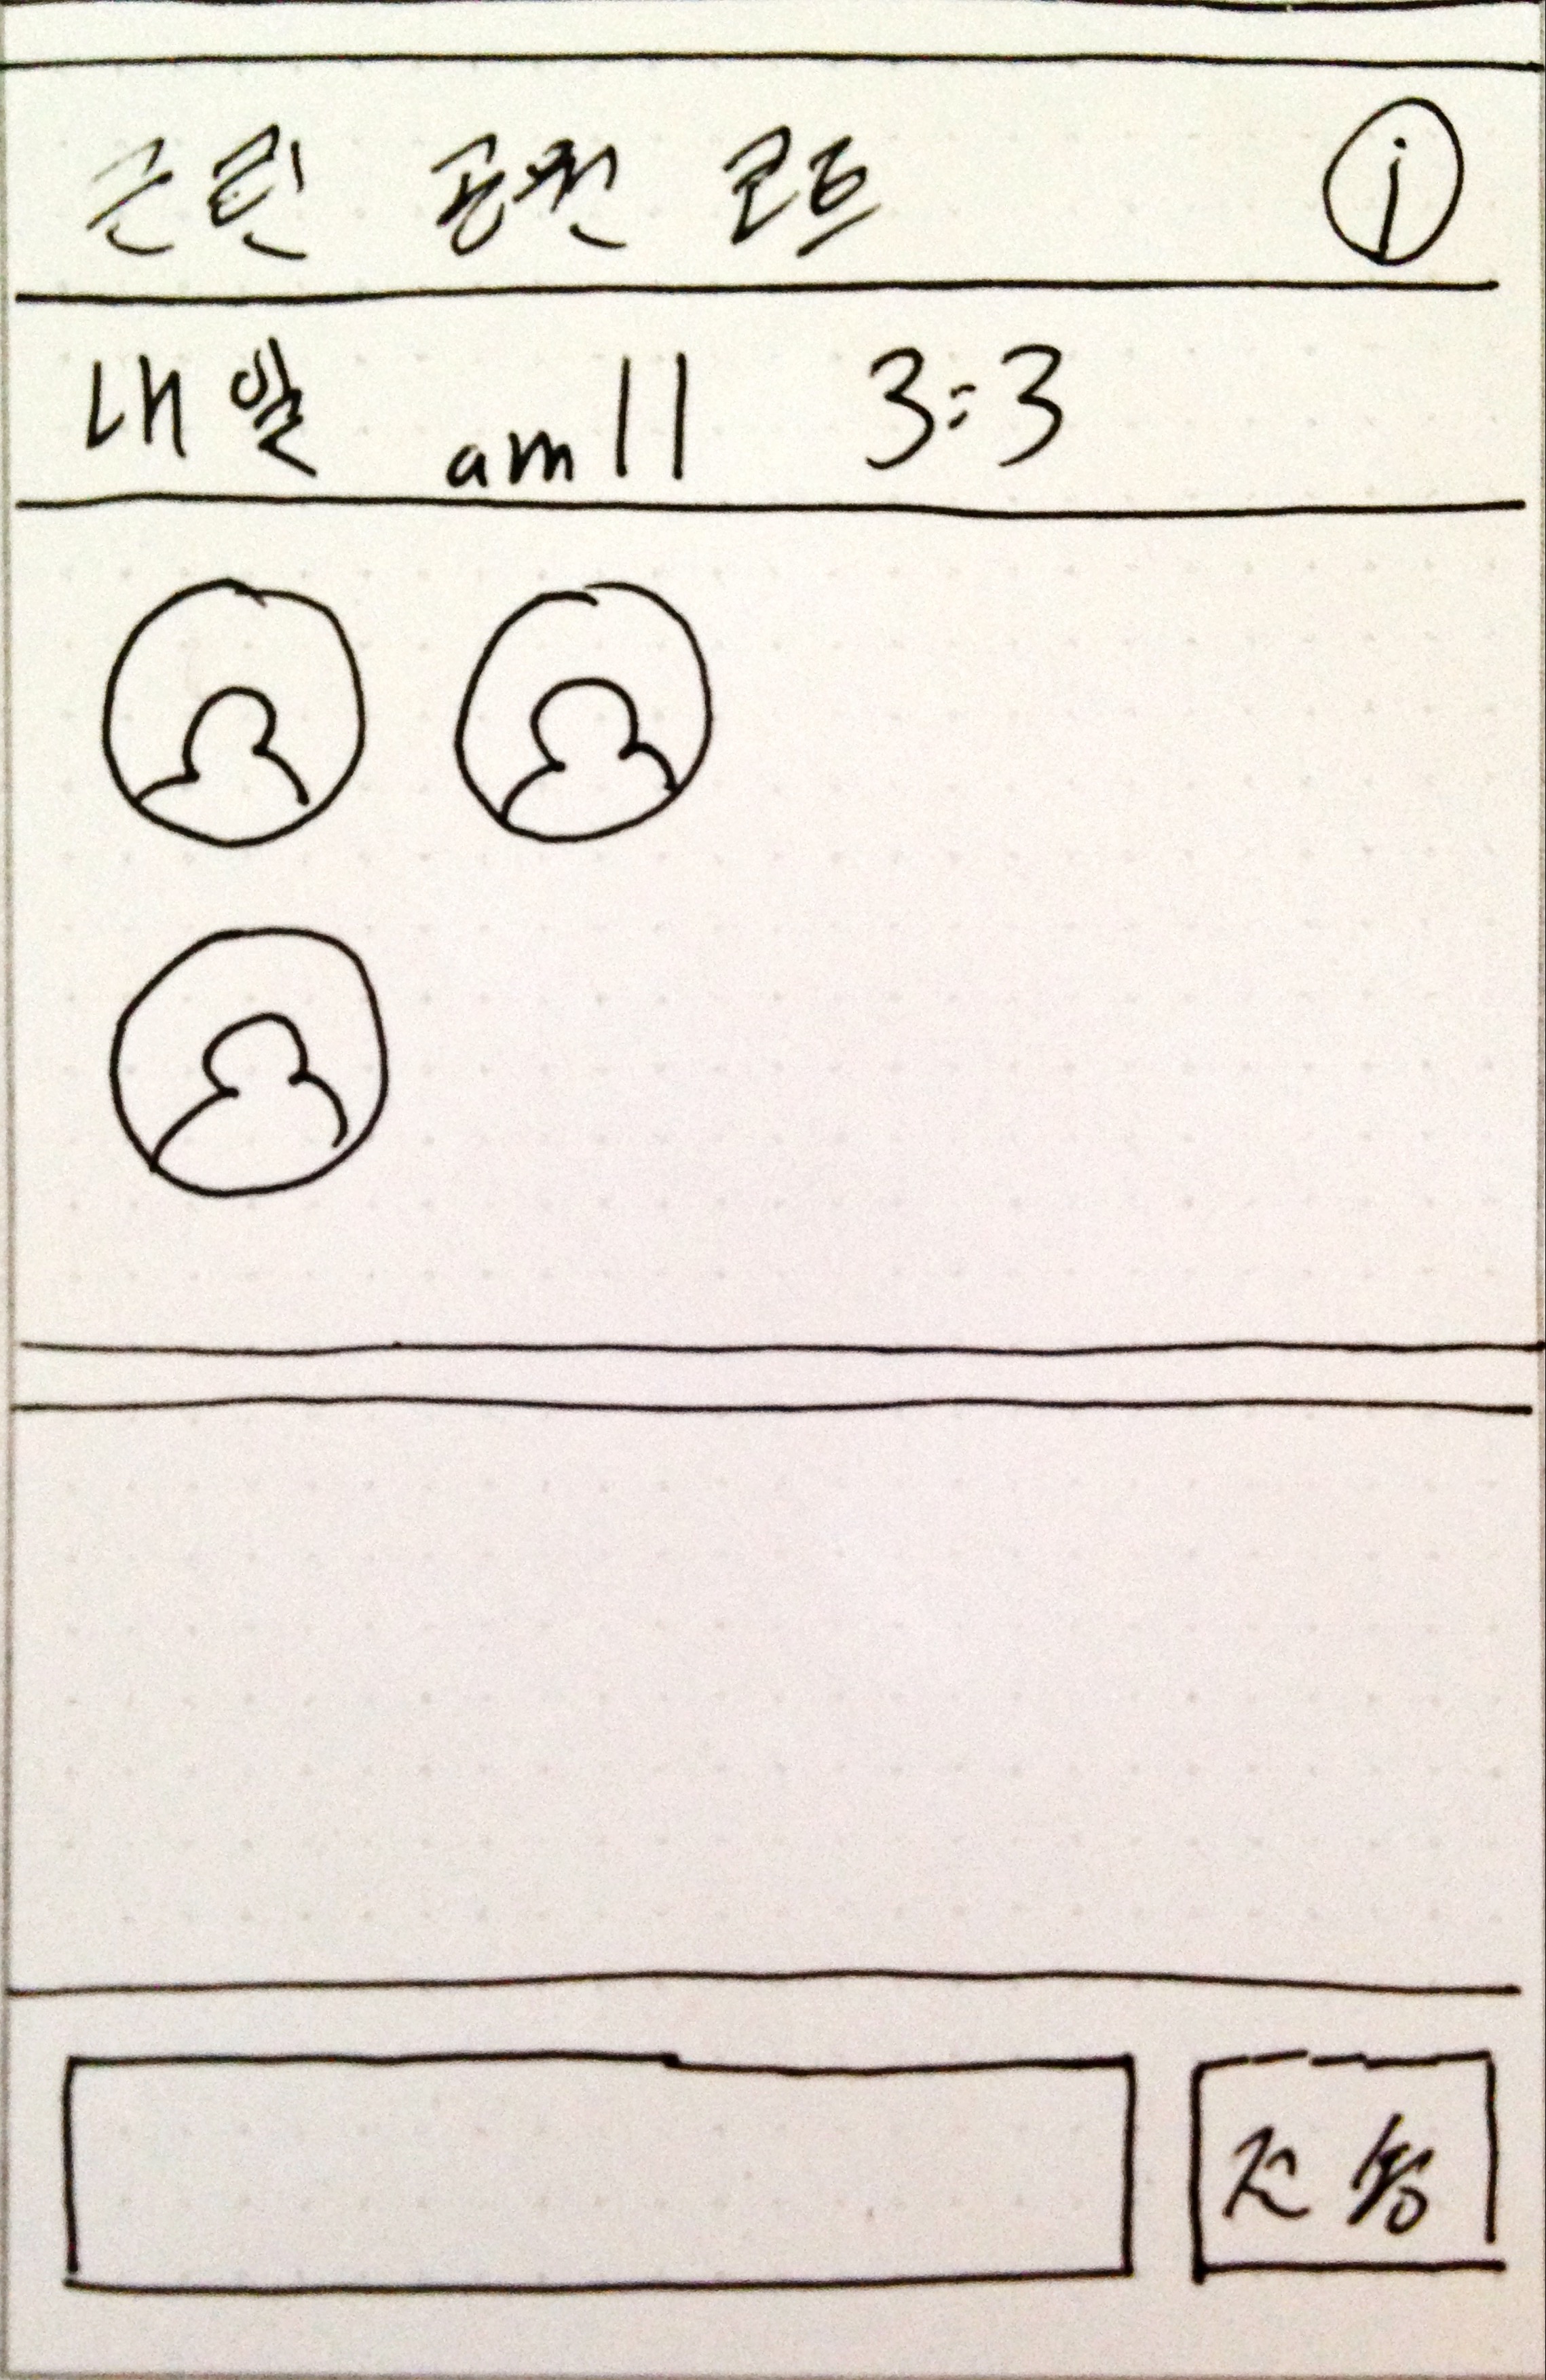 근린 공원 코트 i
내일 am 11 3:3
전송